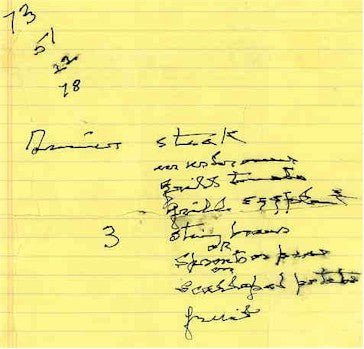 73
51
22
78
Dinner steak
mushrooms
Grill tomato
Grill Eggplant
3 String beans
OR
or
Scalloped potato
fruit